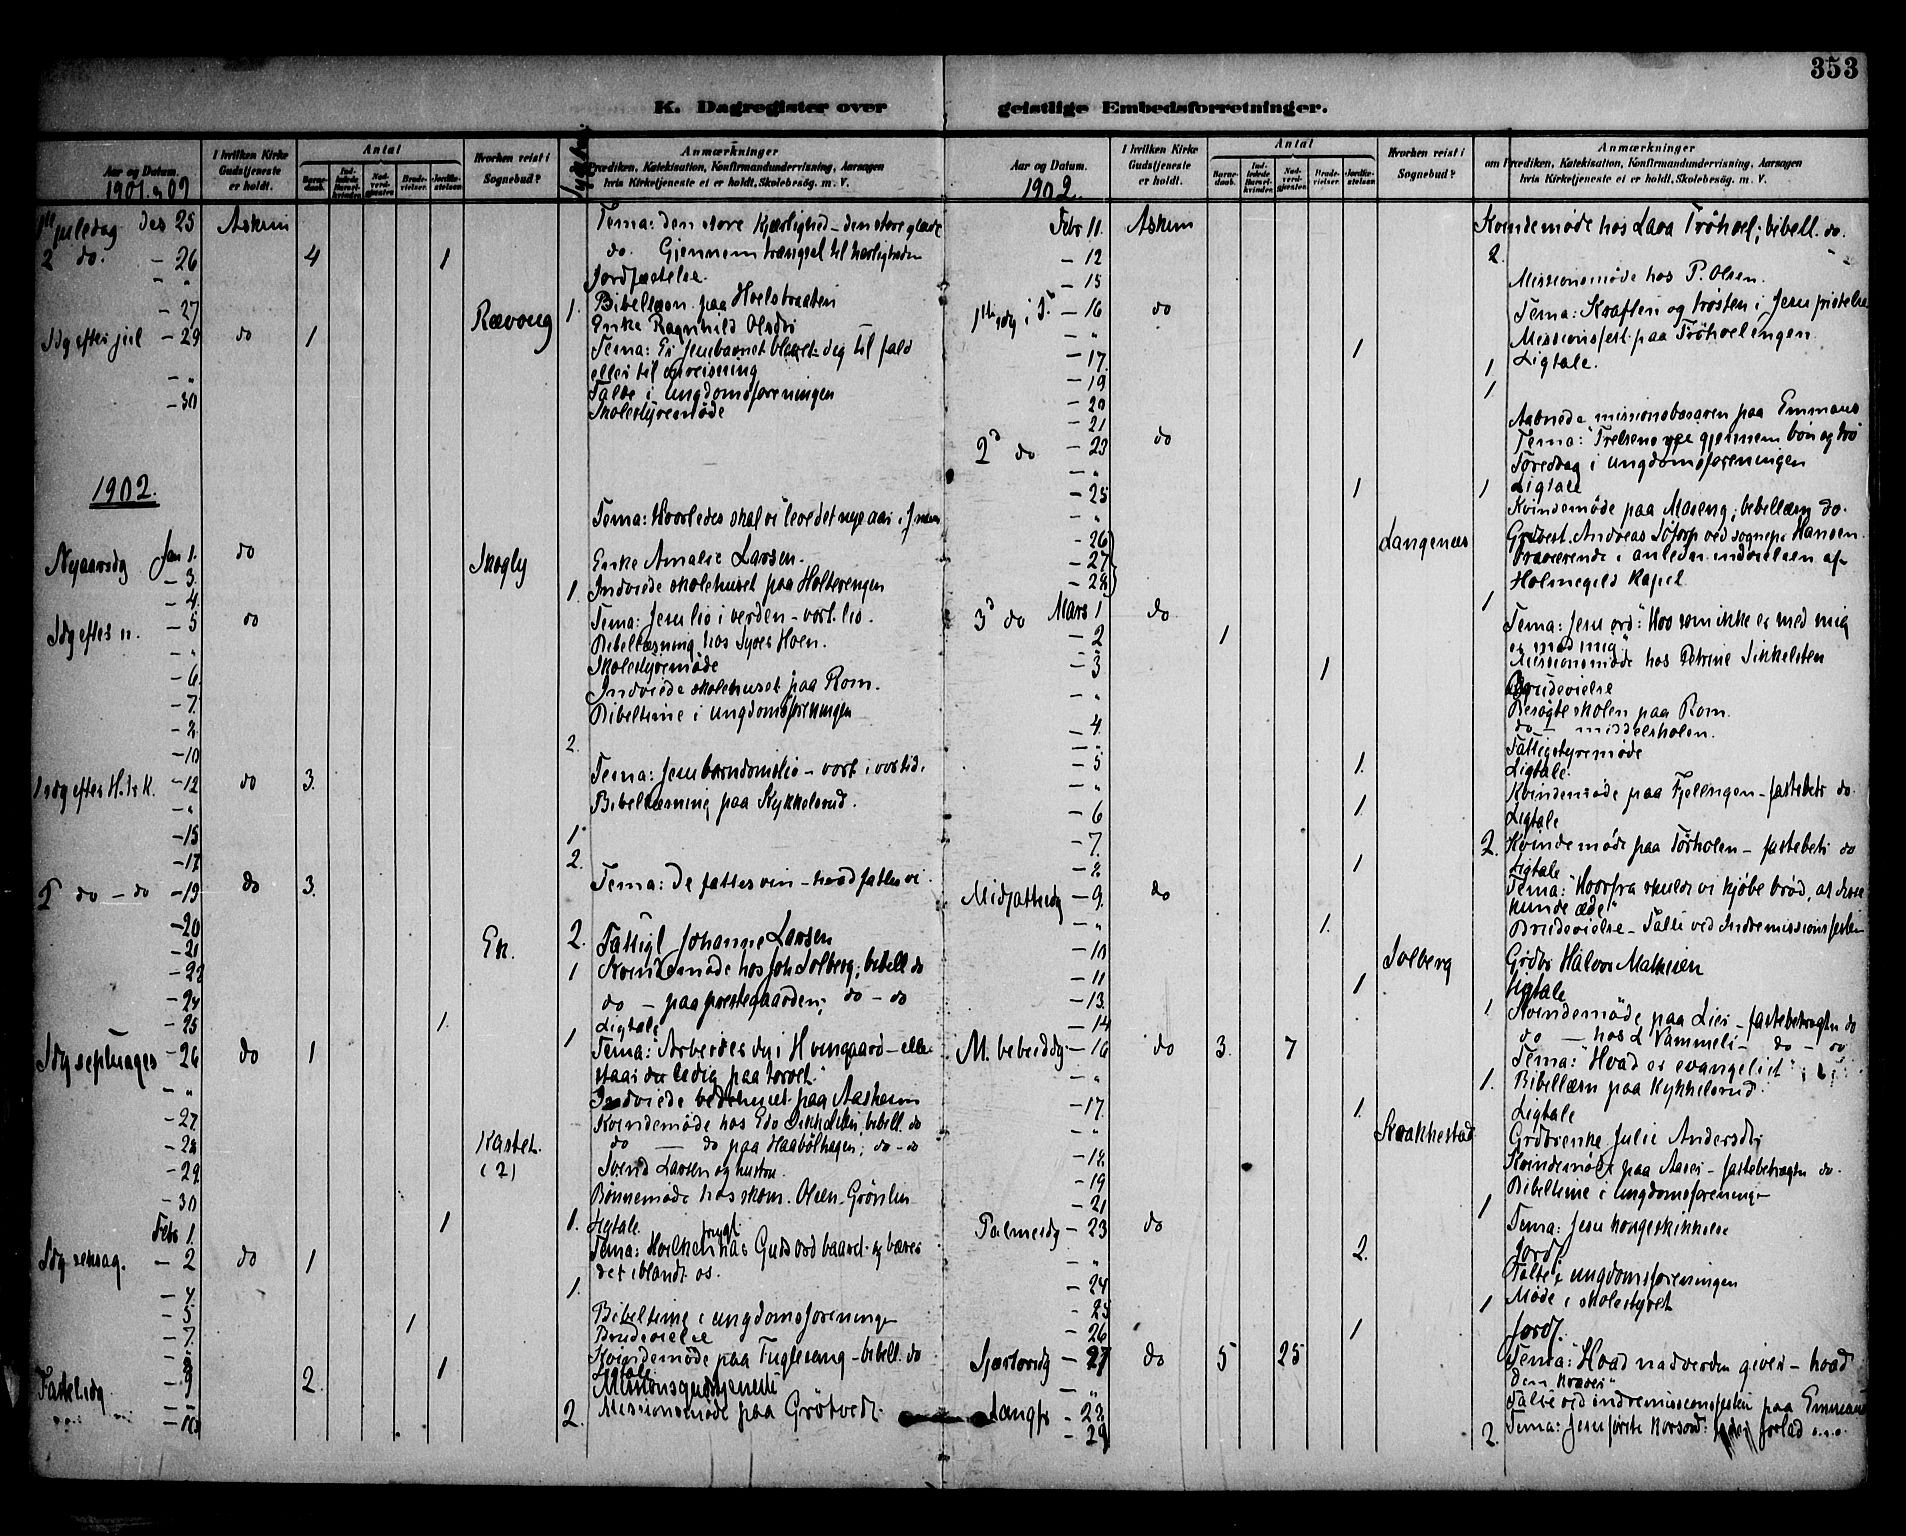 353
K. Dagregister over geistlige Embedsforretninger.
Aar og Datum.
1901 & 02
I hvilken Kirke Gudstjeneste er holdt.
Antal
Barnedaab.
Indledede Barselkvinder.
Nadverdgjæster.
Brudevielser.
Jordfæstelser.
Hvorhen reist i Sognebud?
Anmærkninger
Prædiken, Katekisation, Konfirmandundervisning, Aarsagen
hvis Kirketjeneste ei er holdt, Skolebesøg. m. V.
1ste juledag Des 25 Askim Tema: den store Kjærlighed – den store glæde
2 do. – 26 4 1 do. Gjennem trængsel til herligheden
– " Jordfæstelse.
– 27 1. Bibellæsn. paa Hoelstraaten
Rævoug Enke Ragnhild Olsdtr
Sdg efter jul – 29 do 1 Tema: Er Jesubarnet blevet dig til fald
eller til opreisning
– " Tale i Ungdomsforeningen
– 30 Skolestyremøde
1902.
Tema: Hvorledes skal vi leve det nye aar i Jesu
Nyaarsdg Jan 1. do
– 3. Skogly Enke Amalie Larsen.
– 4. 1. Indviede skolehuset paa Holterengen
Sdg efter n. – 5 do Tema: Jesu liv i verden – vort liv.
– " Bibellæsning hos Syver Hoen.
– 6. Skolestyremøde
– 7. Indviede skolehuset paa Rom.
– 8. Bibeltime i Ungdomsforeningen
– 10 2.
1 sdg efter H. 3 K. – 12 do 3. Tema: Jesu barndomsliv – vort i vor tid.
– " Bibellæsning paa Kykkelsrud.
– 15 1.
– 17 2.
2 do – do – 19 do 3. Tema: De fattes vin – hvad fattes vi
– 20
– 21 Ek. 2. Fattigl Johanne Larsen
– 22 1 Kvindemøde hos Joh Solberg; bibell. do
– 24 do – paa prestegaarden; do – do
– 25 1. Ligtale
Sdg septuages – 26 do 1 1 Tema: "Arbeides dg i Hvingaard – eller
staar du ledig paa torvet."
– " Indviede bedehuset paa Aaskem
– 27 Kvindemøde hos Edv Sikkeland; bibell. do
– 28 Kastet. do – do paa Haabølhagen; do – do
– 29 (2) Svend Larsen og hustru.
– 30 Bønnemøde hos skom. Olsen Grønlien
Febr 1. 1 1. Ligtale
Sdg seksag. – 2 do 1 Tema: Hvilken frugt har Guds ord baaret og bærer
det iblandt os.
– 4. 1.
– 5 Bibeltime i Ungdomsforeningen
– 7. 1 Brudevielse
– 8 1 Kvindemøde paa Fuglesang – bibell. do
Ligtale
Fastel.sdg – 9 2. Missionsgudstjeneste
– 10 2. Missionsmøde paa Grøtvedt.
Aar og Datum.
1902.
I hvilken Kirke Gudstjeneste er holdt.
Antal
Barnedaab.
Indledede Barselkvinder.
Nadverdgjæster.
Brudevielser.
Jordfæstelser.
Hvorhen reist i Sognebud?
Anmærkninger
om Prædiken, Katekisation, Konfirmandundervisning, Aarsagen
hvis Kirketjeneste ei er holdt, Skolebesøg. m. V.
Febr 11. Askim Kvindemøde hos Lava Trøhoel; bibell. do.
– 12 2.
– 15 Missionsmøde hos P. Olsen.
1ste sdg i F. – 16 do Tema: Kraften og trøsten i Jesu fristelse
– " Missionsfest paa Trøhoelengen
– 17. 1 Ligtale.
– 19 1
– 20 1
– 21 Aabnede missionsbasaren paa Emmaus
2d do – 23 do Tema: Frelsens vee gjennem bøn og tro
– " Foredrag i Ungdomsforeningen
– 25 1 1 Ligtale
– " Kvindemøde paa Moseng; bibellæsn do.
– 26 Langenæs Grdbest. Andreas Søtorp ved sognepr. Hansen
– 27 fraværende i anledn. indvielsen af
– 28 Holmegild Kapel
3d do Mars 1 do 1
– 2 1 Tema: Jesu ord: "Hvo som ikke er med mig
er mod mig"
" Missionsmøde hos Petrine Sikkeland
– 3 1 Brudevielse
– " Besøgte skolen paa Rom.
– 4. do – middelskolen.
– " Fattigstyremøde
– 5 1. Ligtale.
– " Kvindemøde paa Fjellengen – fastebetr do.
– 6 1 Ligtale
– 7. 2. Kvindemøde paa Torholen – fastebetr do
– 8 1 Ligtale
Midfastesdg – 9. do Tema: "Hvorfra skulde vi kjøbe brød, at disse
kunde æde"
– " 1. Brudevielse – Tale ved Indremissionsfesten
– 10 Solberg Grdbr Halvor Mathisen
– 11 1 Ligtale
– 13. 1 Kvindemøde paa Lier – fastebetragtn do
– 14 do – hos L Vammeli – do – do
M. bebud.dg – 16 do 3. 7 Tema: "Hvad er evangeliet"
– " 1. Bibellæsn paa Kykkelsrud.
– 17. 1. Ligtale
– " Kraakkestad Grdbrenke Julie Andersdtr
– 18 Kvindemøde paa Aaser – fastebetragtn do.
– 19 Bibeltime i Ungdomsforeningen
– 21 1
Palmesdg – 23 do Tema: Jesu kongeskikkelse
2. Jordf.
– " Tale i Ungdomsforeningen
– 24 Møde i skolestyret
– 25 1
– 26 1 Jordf.
Skjærtorsdg – 27 do 5 25 Tema: "Hvad nadverden giver – hvad
den kræver"
– " Tale ved indremissionsfesten paa Emmaus
Langfr – 28 Tema: Jesu første korsord: Fader forlad o.s.v.
– 29 2.